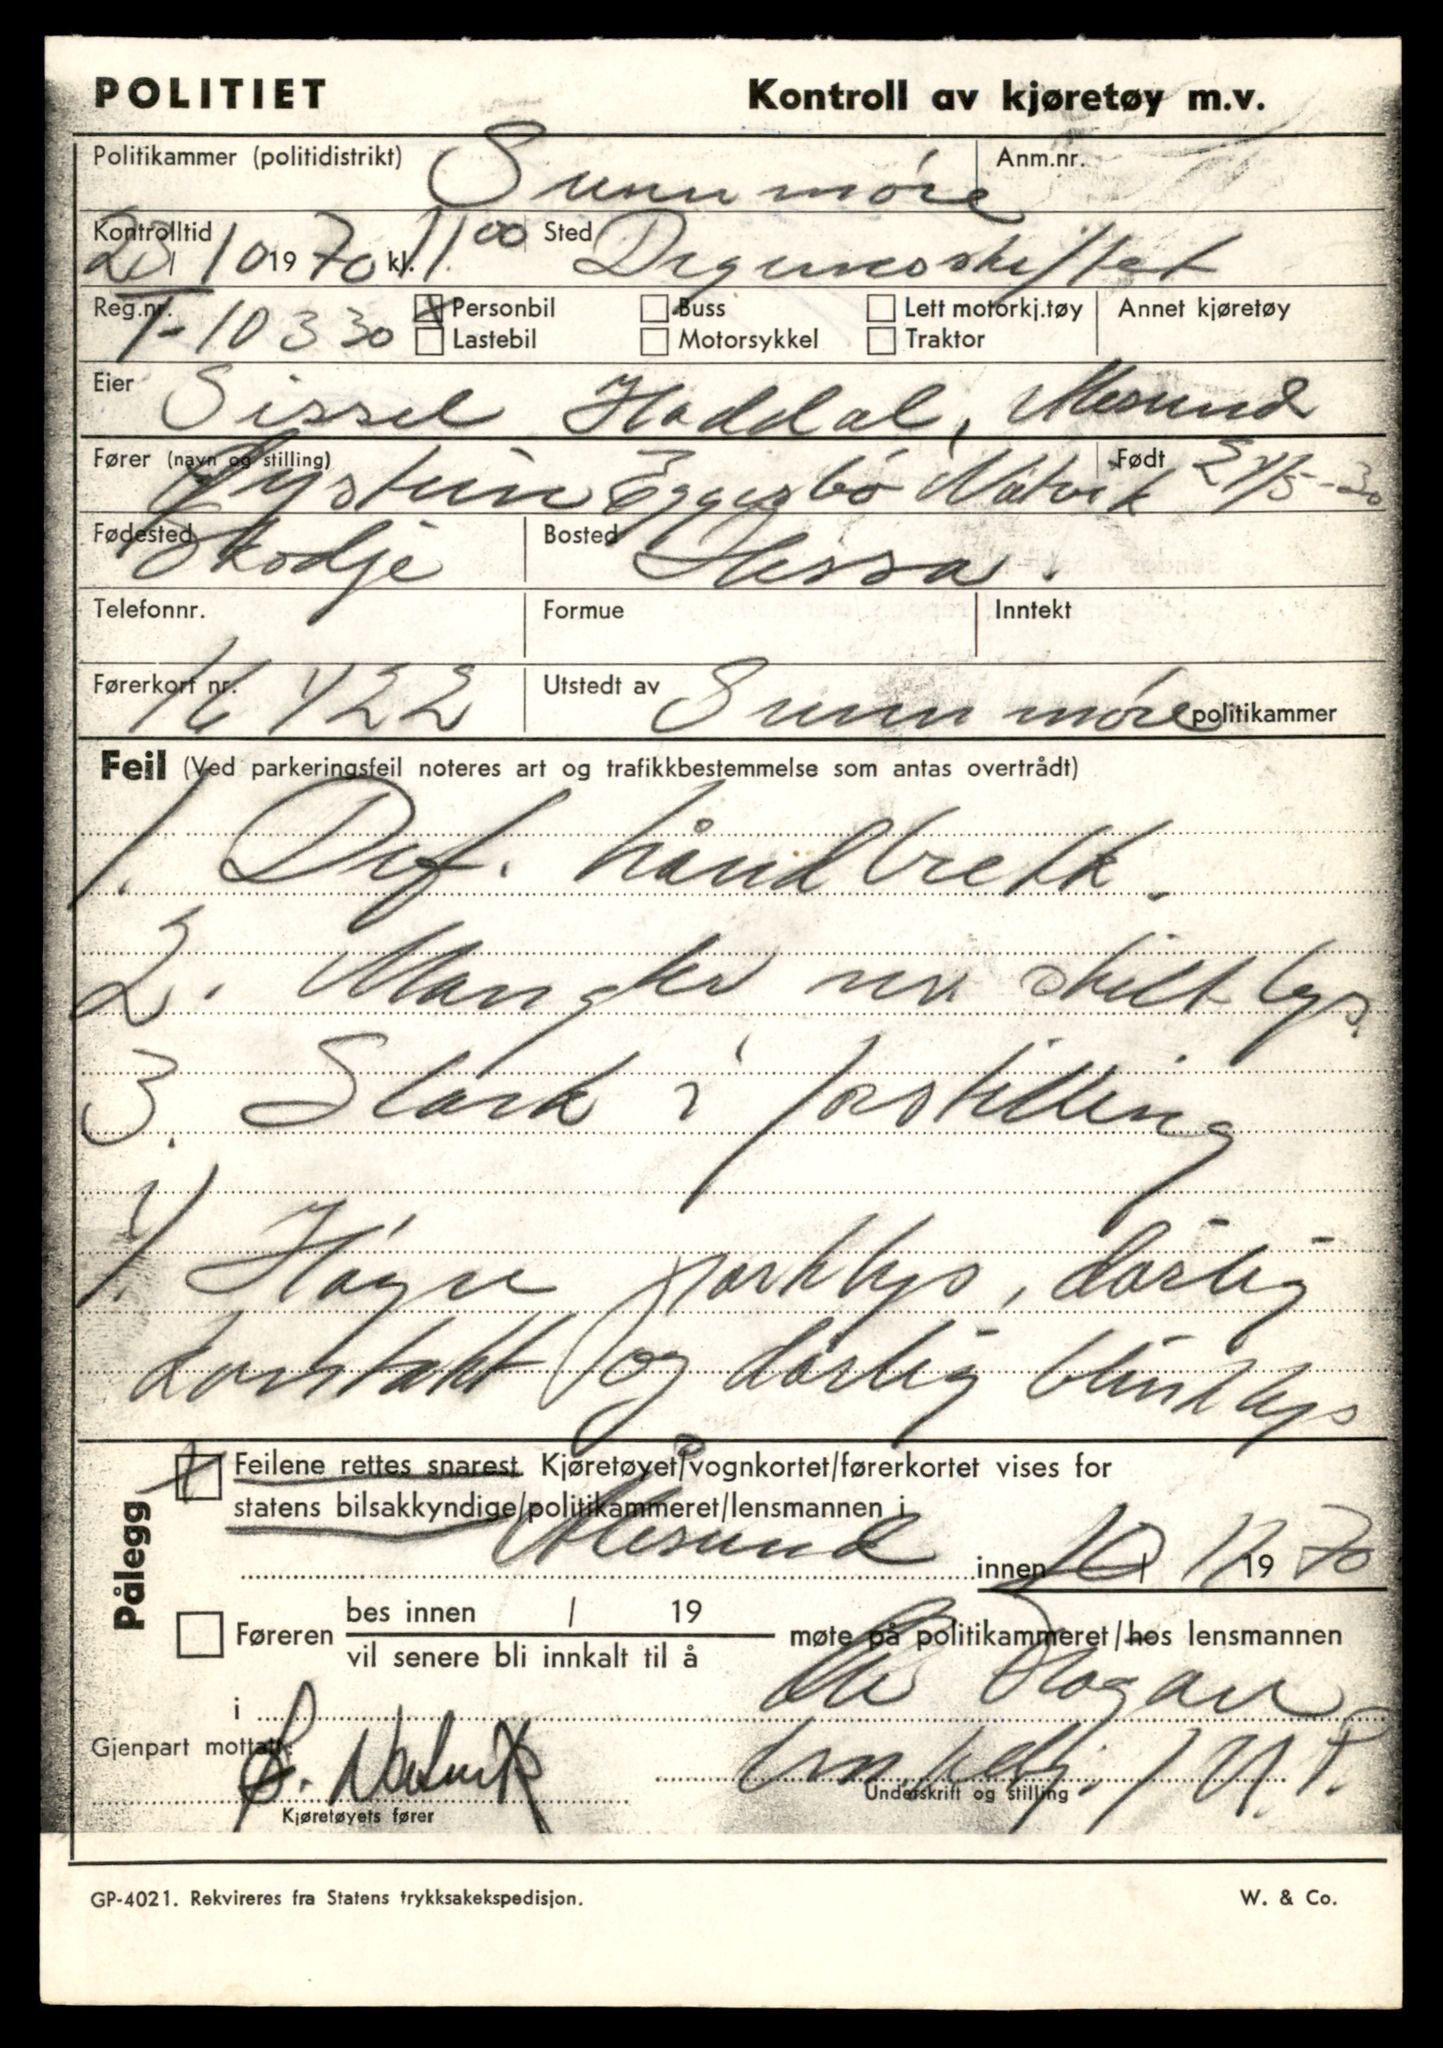 POLITIET Kontroll av kjøretøy m.v.
Politikammer (politidistrikt) Sunnmöre Anm.nr.
Kontrolltid 23/10 1970 kl. 11.00 Sted Digernesskiftet
Reg.nr. T-10330 Personbil Buss Lett motorkj.tøy Annet kjøretøy
Lastebil Motorsykkel Traktor
Eier Sissel Haddal, Ålesund
Fører (navn og stilling) Øystein Eggesbö Natvik Født 24/5-30
Fødested Skodje Bosted Hessa.
Telefonnr. Formue Inntekt
Førerkort nr. 16422 Utstedt av Sunnmöre politikammer
Feil (Ved parkeringsfeil noteres art og trafikkbestemmelse som antas overtrådt)
1. Def. håndbrekk.
2. Mangler skiltlys.
3. Slark i forstilling
4. Högre parklys, dårlig
kontakt og dårlig blinklys
Pålegg
Feilene rettes snarest. Kjøretøyet/vognkortet/førerkortet vises for
statens bilsakkyndige/politikammeret/lensmannen i
Ålesund innen 10/11 1970
Føreren bes innen / 19
vil senere bli innkalt til å møte på politikammeret/hos lensmannen
i
Gjenpart mottatt: Ø. Natvik
Kjøretøyets fører Underskrift og stilling
U.P.
GP-4021. Rekvireres fra Statens trykksakekspedisjon. W. & Co.